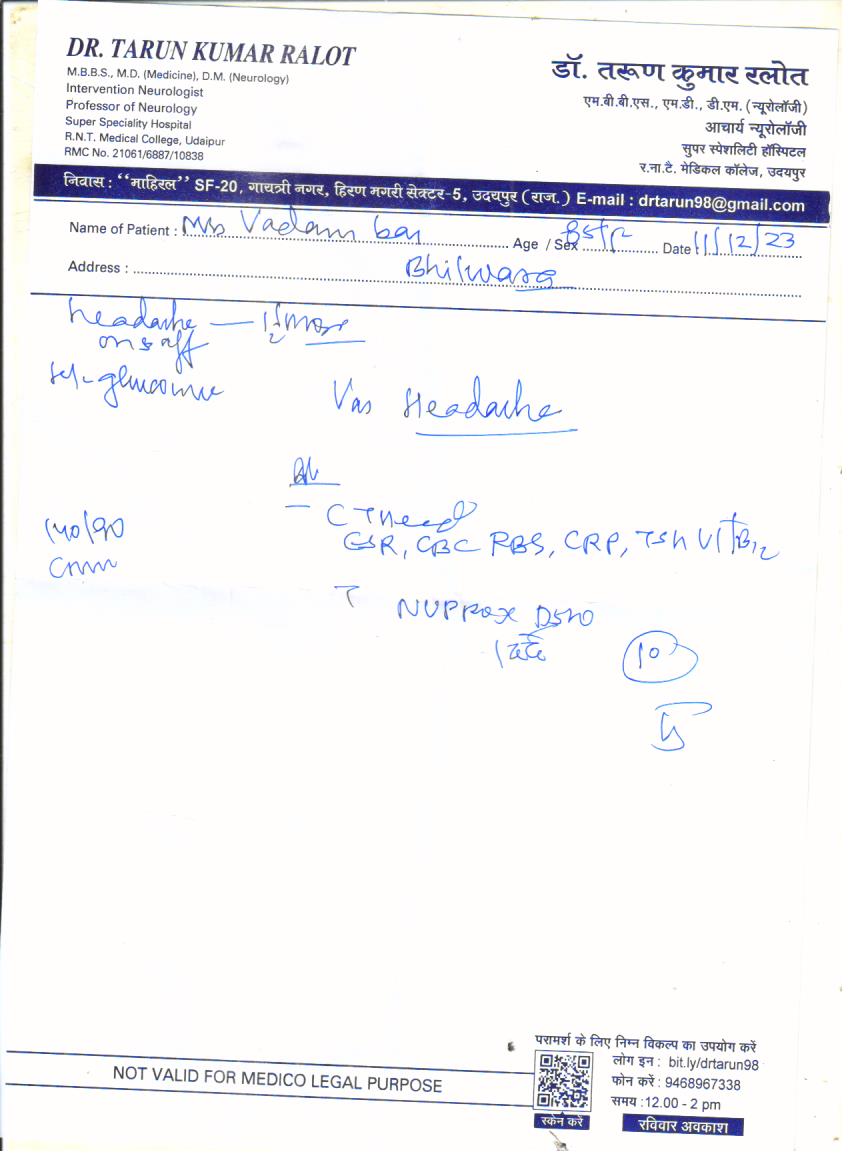 DR. TARUN KUMAR RALOT
M.B.B.S., M.D. (Medicine), D.M. (Neurology)
Intervention Neurologist
Professor of Neurology
Super Speciality Hospital
R.N.T. Medical College, Udaipur
RMC No. 21061/6887/10838
डॉ. तरूण कुमार रलोत
एम.बी.बी.एस., एम.डी., डी.एम. (न्यूरोलॉजी)
आचार्य न्यूरोलॉजी
सुपर स्पेशलिटी हॉस्पिटल
र.ना.टै. मेडिकल कॉलेज, उदयपुर
निवास : "माहिरल" SF-20, गायत्री नगर, हिरण मगरी सेक्टर-5, उदयपुर (राज.) E-mail : drtarun98@gmail.com
Name of Patient : Vadam bai Age / Sex Date : 11/12/23
Address : Bhilwara
headache —
on & off
Vas Headache
- CT head
ESR, CBC RBS, CRP, TSH VitB12
140/90
10
NOT VALID FOR MEDICO LEGAL PURPOSE
परामर्श के लिए निम्न विकल्प का उपयोग करें
लोग इन : bit.ly/drtarun98
फोन करें : 9468967338
समय :12.00 - 2 pm
स्केन करें
रविवार अवकाश